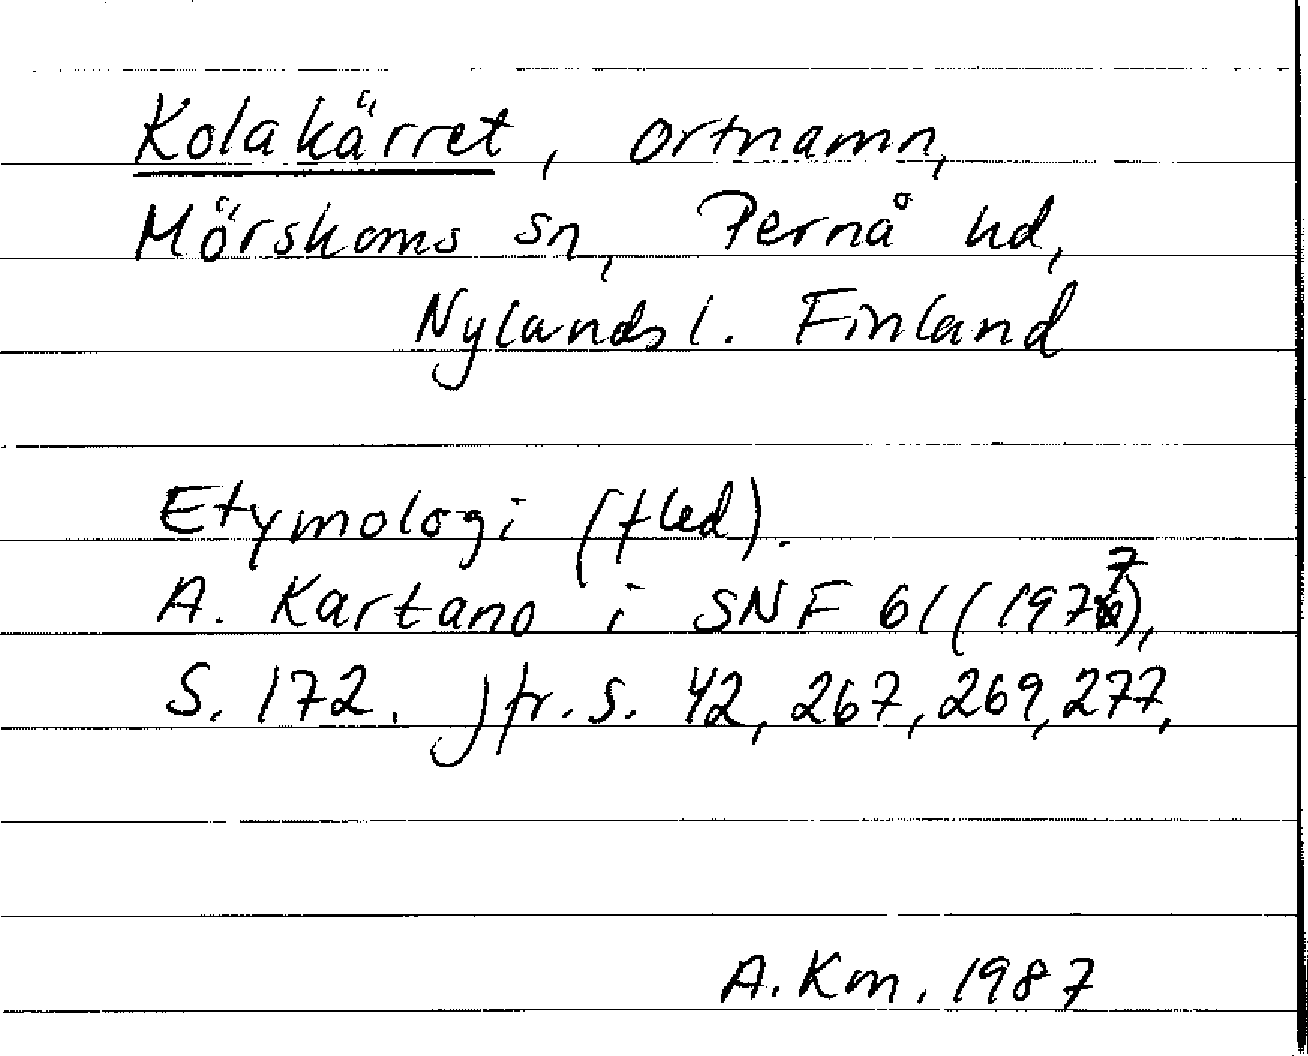 Kolakärret, ortnamn,
Mörskoms sn, Pernå hd,
Nylands l. Finland
Etymologi (fled).
A. Kartano i SNF 61 (1977),
S. 172. Jfr. s. 42, 267, 269, 277,
A. Km. 1987